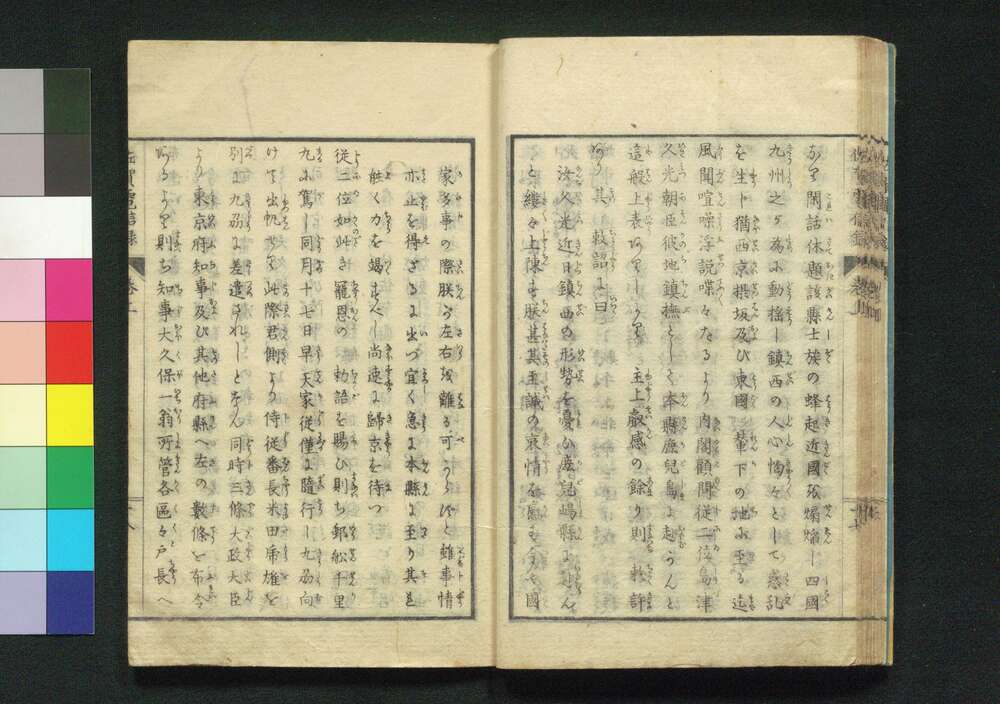 なり閑話休題該縣士族の蜂起近國を煽焔し四國
九州之が為に動揺し鎮西の人心恟々として惑乱
を生じ猶西京摂坂及び東國輦下の地に至る迄
風聞喧噪浮説喋々たるより内閣顧問従二位島津
久光朝臣彼地鎮撫として本縣鹿児島に赴かんと
這般上表ありしかば主上叡感の餘り則敕許
あり其敕詔に曰
汝久光近日鎮西の形勢を憂ひ鹿兒嶋縣に
と縷々上陳す朕甚其至誠の哀情を感も今や國
家多事の際朕が左右を離る可からずと雖事情
亦止を得ざるに出づ宜く急に本縣に至り其
能く力を竭すべし尚速に歸京を待つ
従二位如此き寵恩の勅語を賜ひ則ち郵舩千里
九に駕し同月十七日早天家従僅に隨行し九州向
けて出帆せり此際君側より侍従番長米田席雄を
別に九州に差遣されしとなん同時三條大政大臣
より東京府知事及び其他府縣へ左の數條を布令
あるより則ち知事大久保一翁所管各區々戸長へ